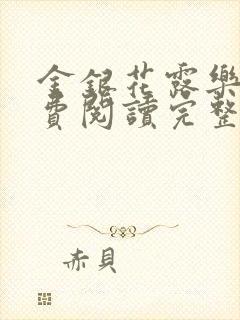 金銀花露樂
費閱讀完整
赤貝